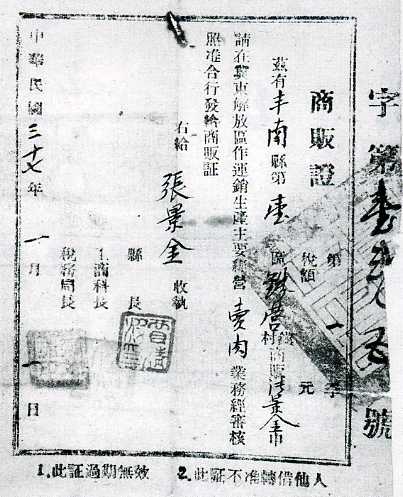 字第壹號
商販證
第一字
稅額 元
茲有丰南縣第壹區營村商販張景金申
請在冀東解放區作運銷生產主要經營賣肉業務經審核
照准合行發給商販証
右給
張景金 收執
縣長
工商科長
稅務局長
中華民國三十七年一月一日
1.此証過期無效 2.此証不准轉借他人